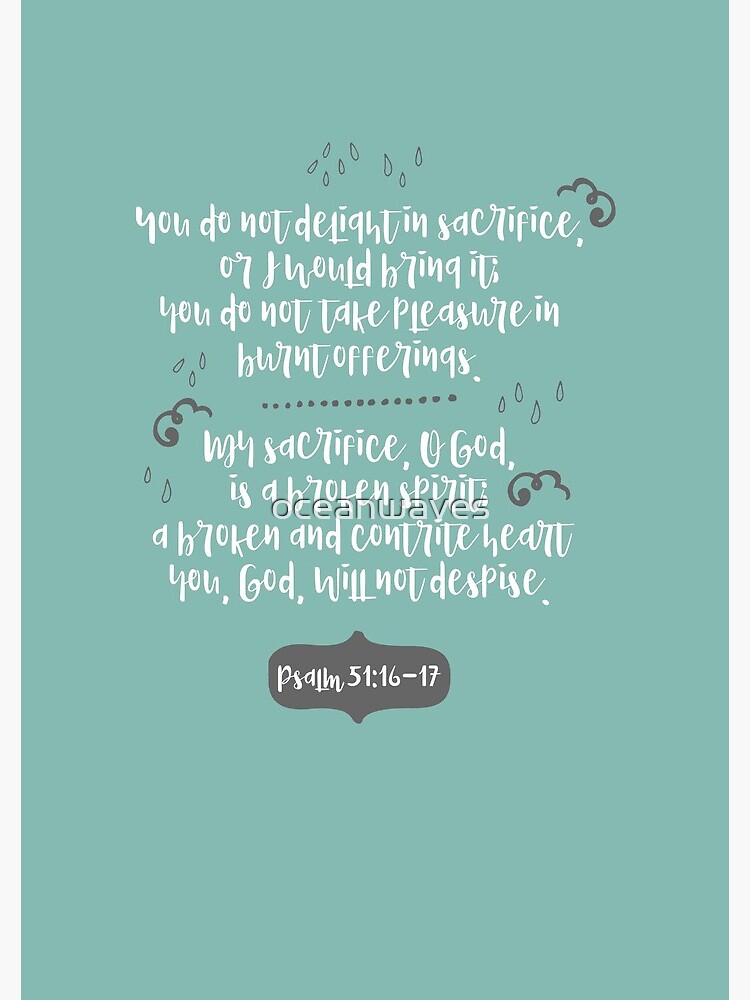 You do not delight in sacrifice,
or I would bring it;
you do not take pleasure in
burnt offerings.
My sacrifice, O God,
is a broken spirit;
oceanwaves
a broken and contrite heart
you, God, will not despise.
Psalm 51:16-17